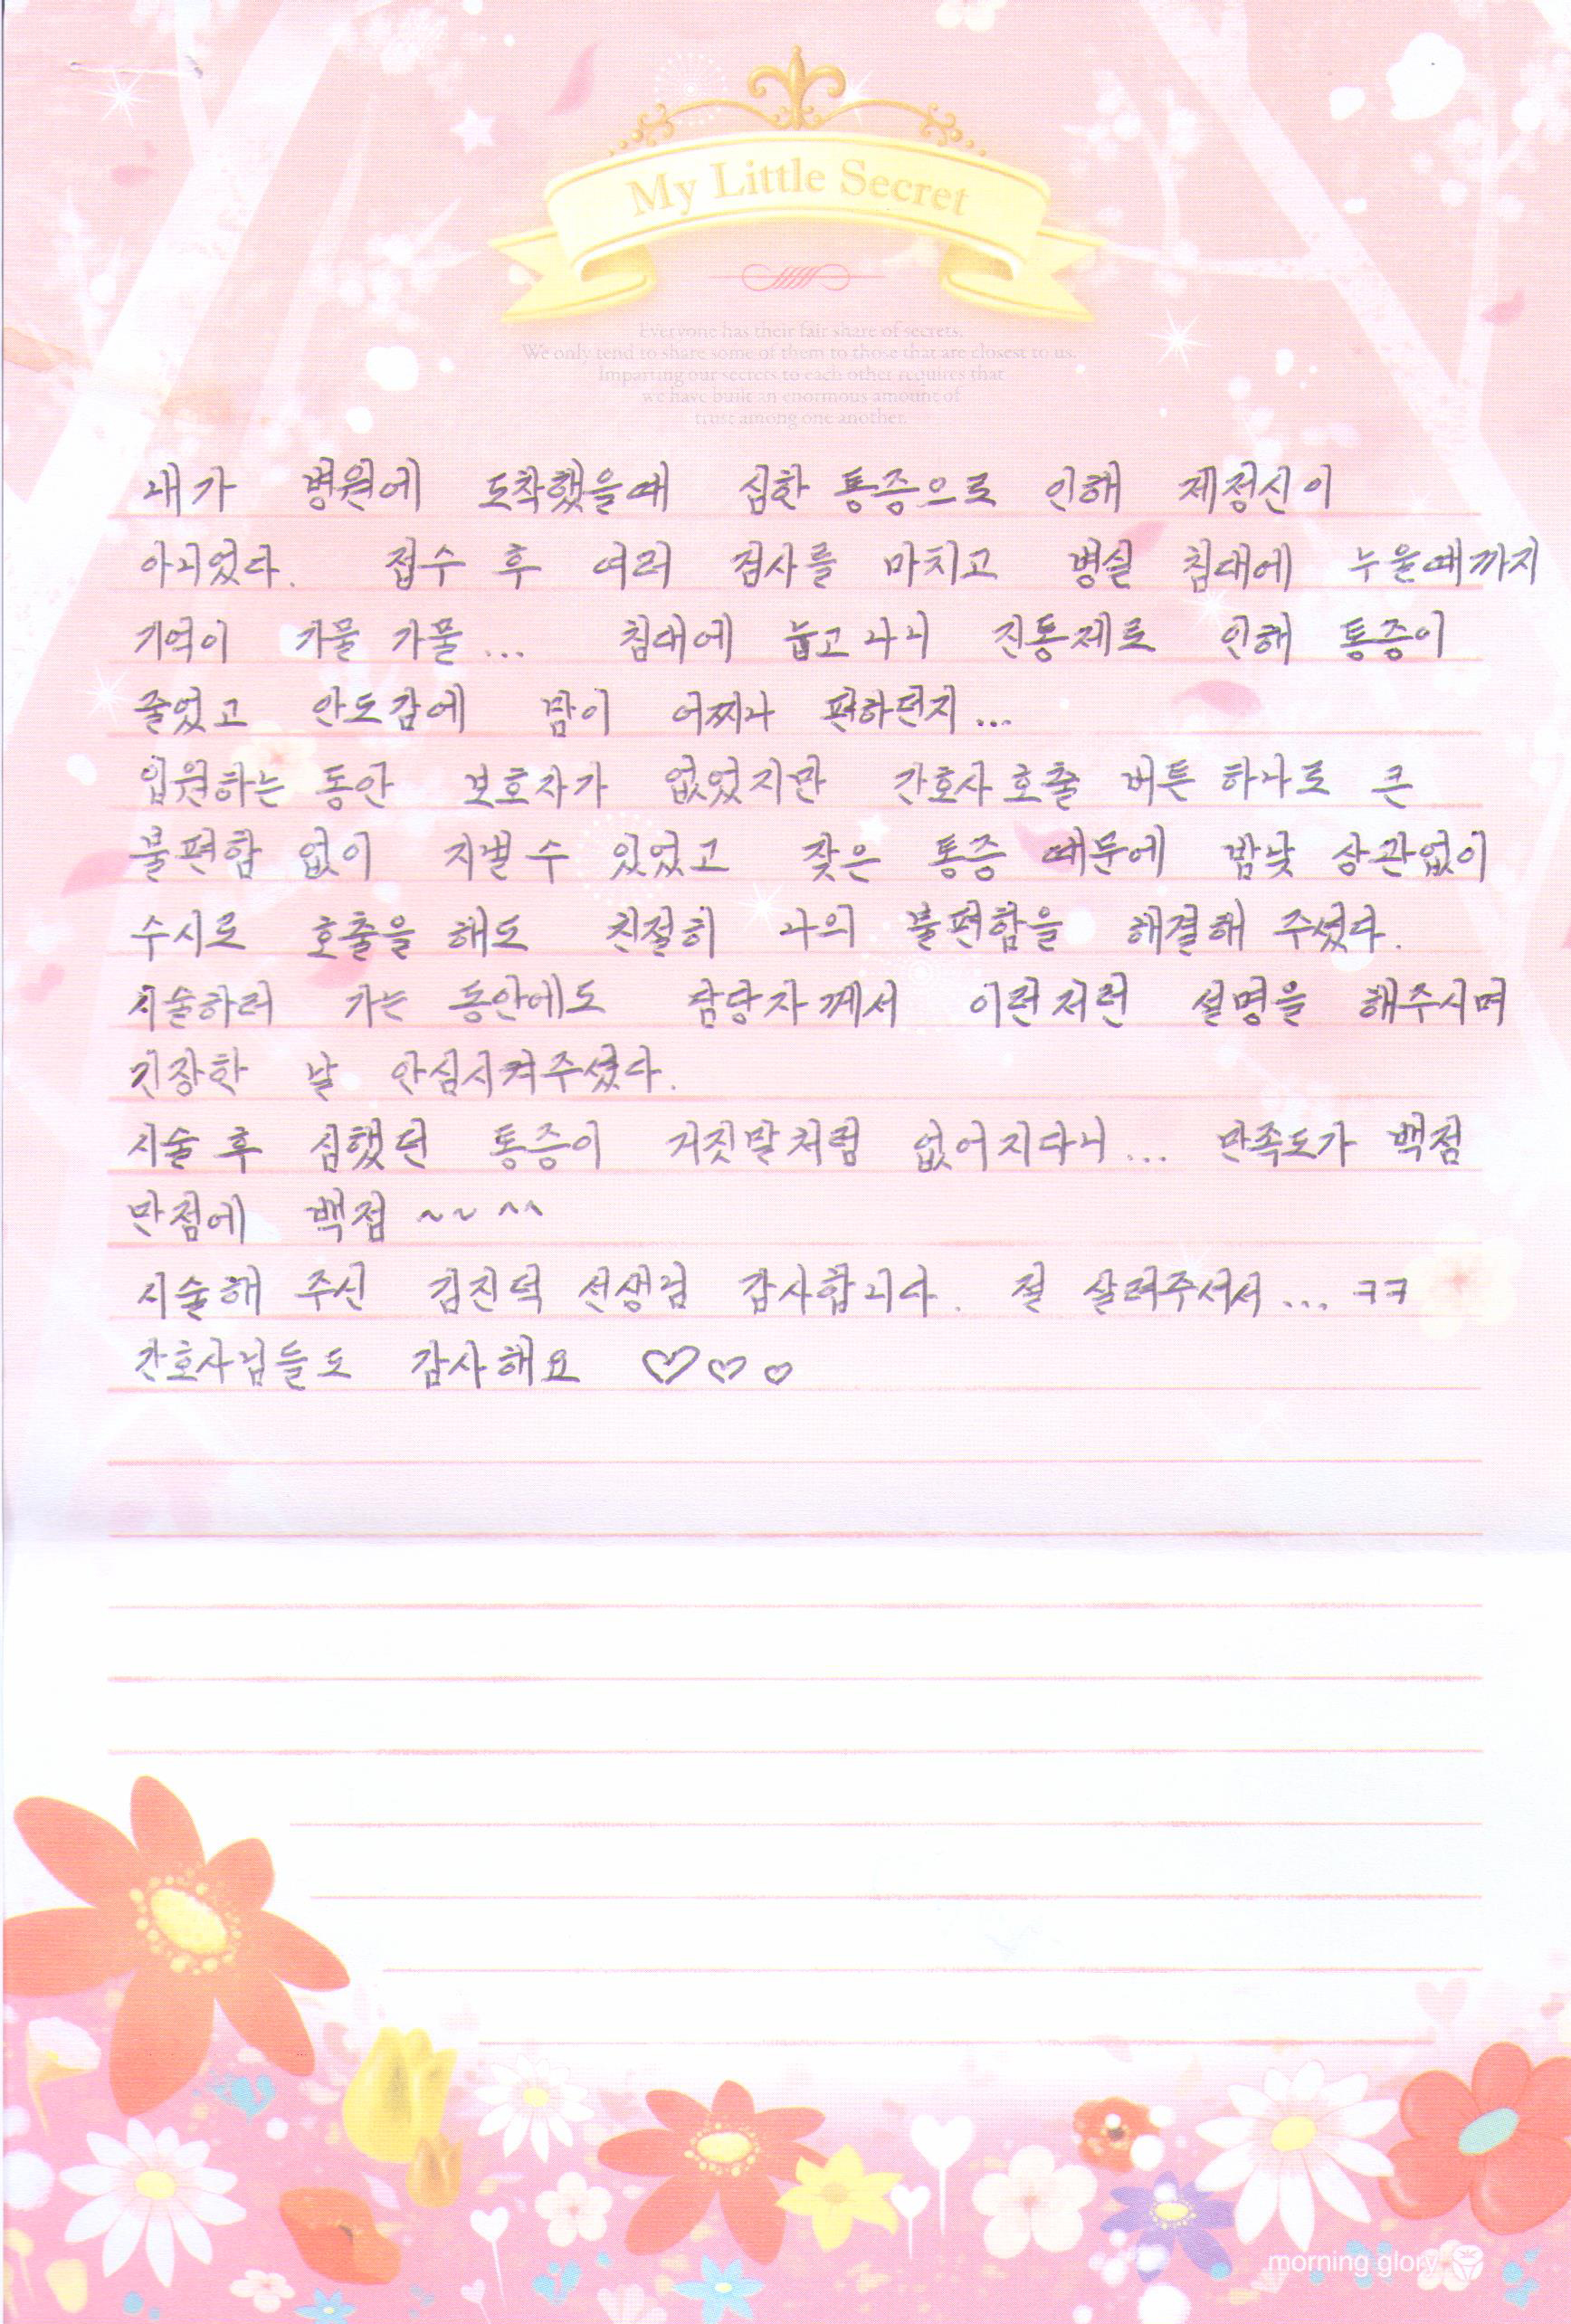 My Little Secret
Everyone has their fair share of secrets.
We only tend to share some of them to those that are closest to us.
Imparting our secrets to each other requires that
we have built an enormous amount of
trust among one another.
내가 병원에 도착했을때 심한 통증으로 인해 제정신이
아니었다. 접수 후 여러 검사를 마치고 병실 침대에 누울때까지
기억이 가물 가물... 침대에 눕고나니 진통제로 인해 통증이
줄었고 안도감에 맘이 어찌나 편하던지...
입원하는 동안 보호자가 없었지만 간호사 호출 버튼 하나로 큰
불편함 없이 지낼 수 있었고 잦은 통증 때문에 밤낮 상관없이
수시로 호출을 해도 친절히 나의 불편함을 해결해 주셨다.
시술하러 가는 동안에도 담당자께서 이런저런 설명을 해주시며
긴장한 날 안심시켜주셨다.
시술 후 심했던 통증이 거짓말처럼 없어지다니... 만족도가 백점
만점에 백점 ~~ ^^
시술해 주신 김진덕 선생님 감사합니다. 절 살려주셔서... ㅋㅋ
간호사님들도 감사해요 ♡♡♡
morning glory